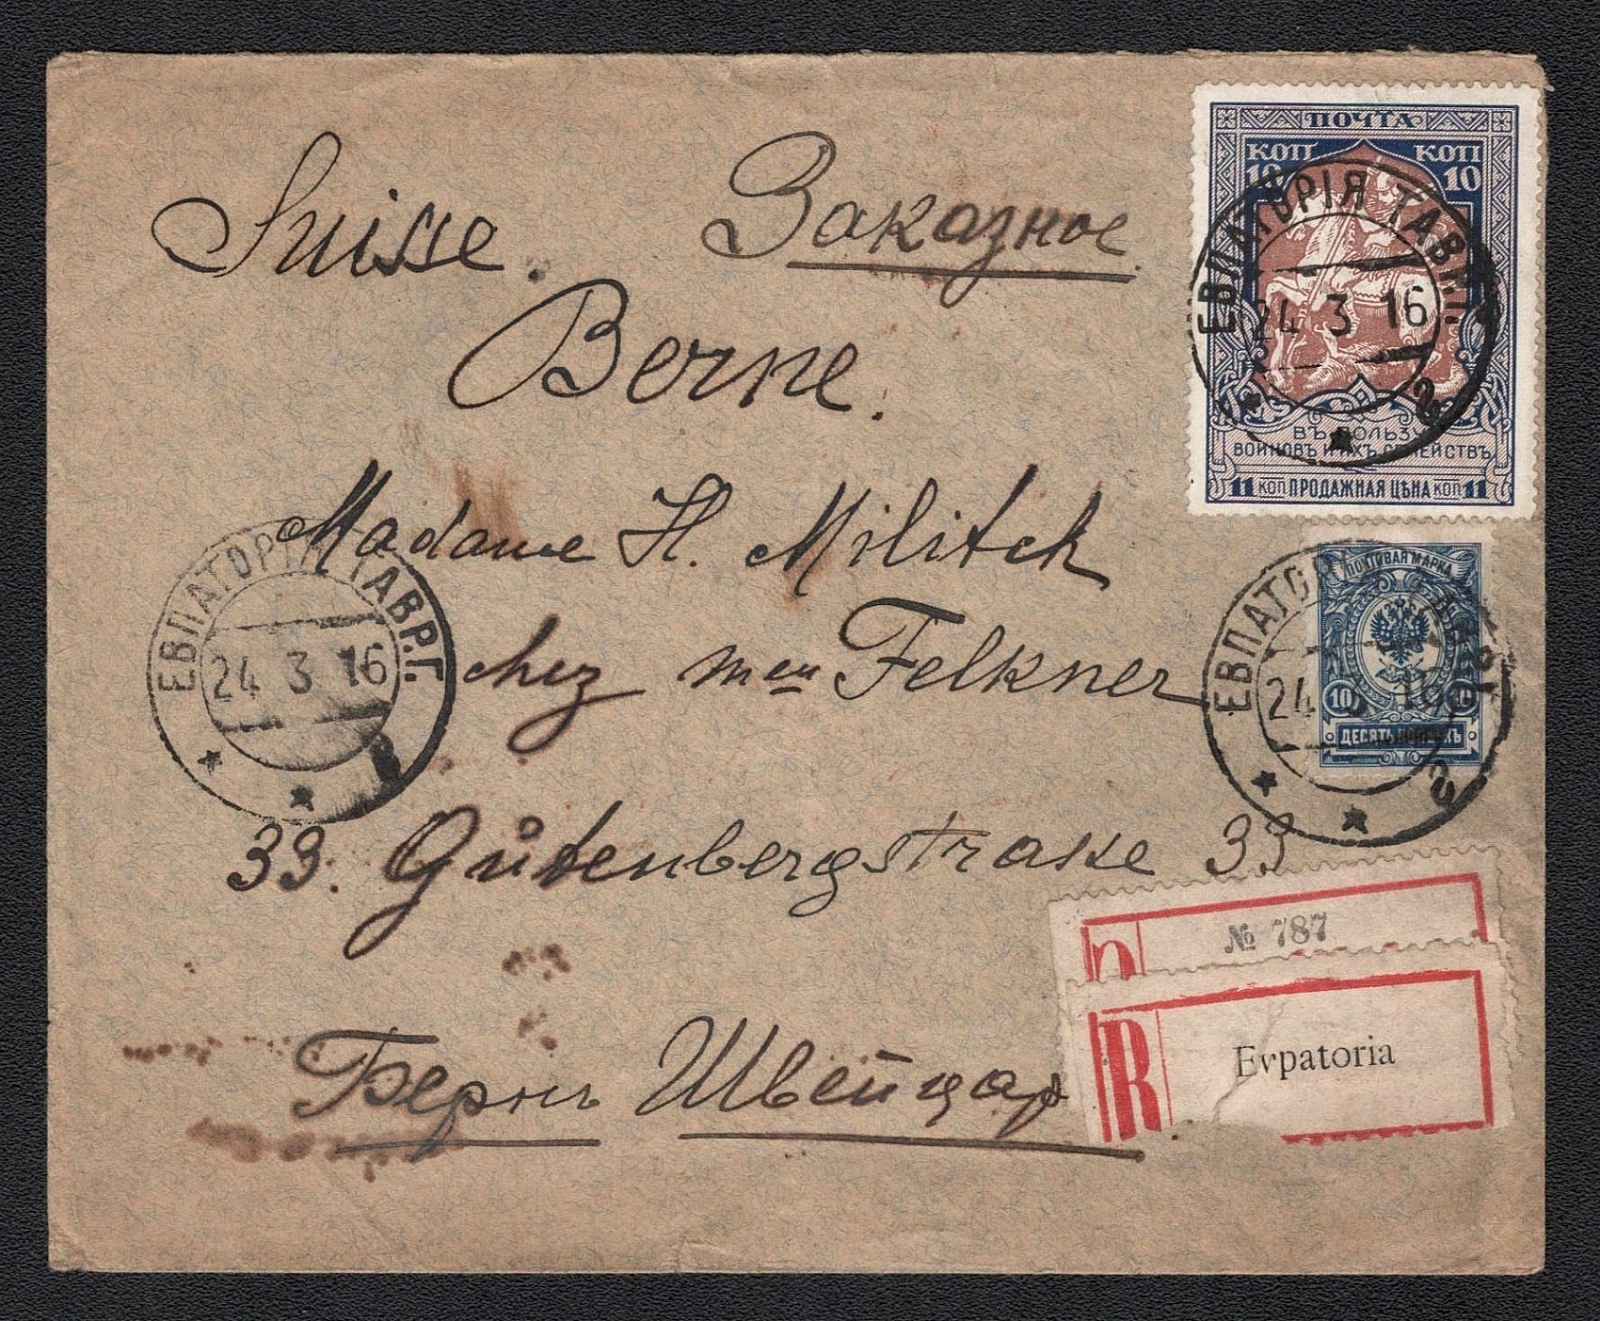 Suisse. Заказное
Berne.
Madame H. Militch
chez Felkner
33. Gůtenbergstrasse 33
Бернъ Швейцар
ПОЧТА
КОП КОП
10 10
ВЪ ПОЛЬЗУ
ВОИНОВЪ И ИХЪ СЕМЕЙСТВЪ
11 КОП ПРОДАЖНАЯ ЦѢНА КОП 11
ЕВПАТОРІЯ ТАВР.Г.
24 3 16
2
ПОЧТОВАЯ МАРКА
10 10
ДЕСЯТЬ КОПѢЕКЪ
ЕВПАТОРІЯ ТАВР.Г.
24 3 16
2
ЕВПАТОРІЯ ТАВР.Г.
24 3 16
№ 787
R Evpatoria